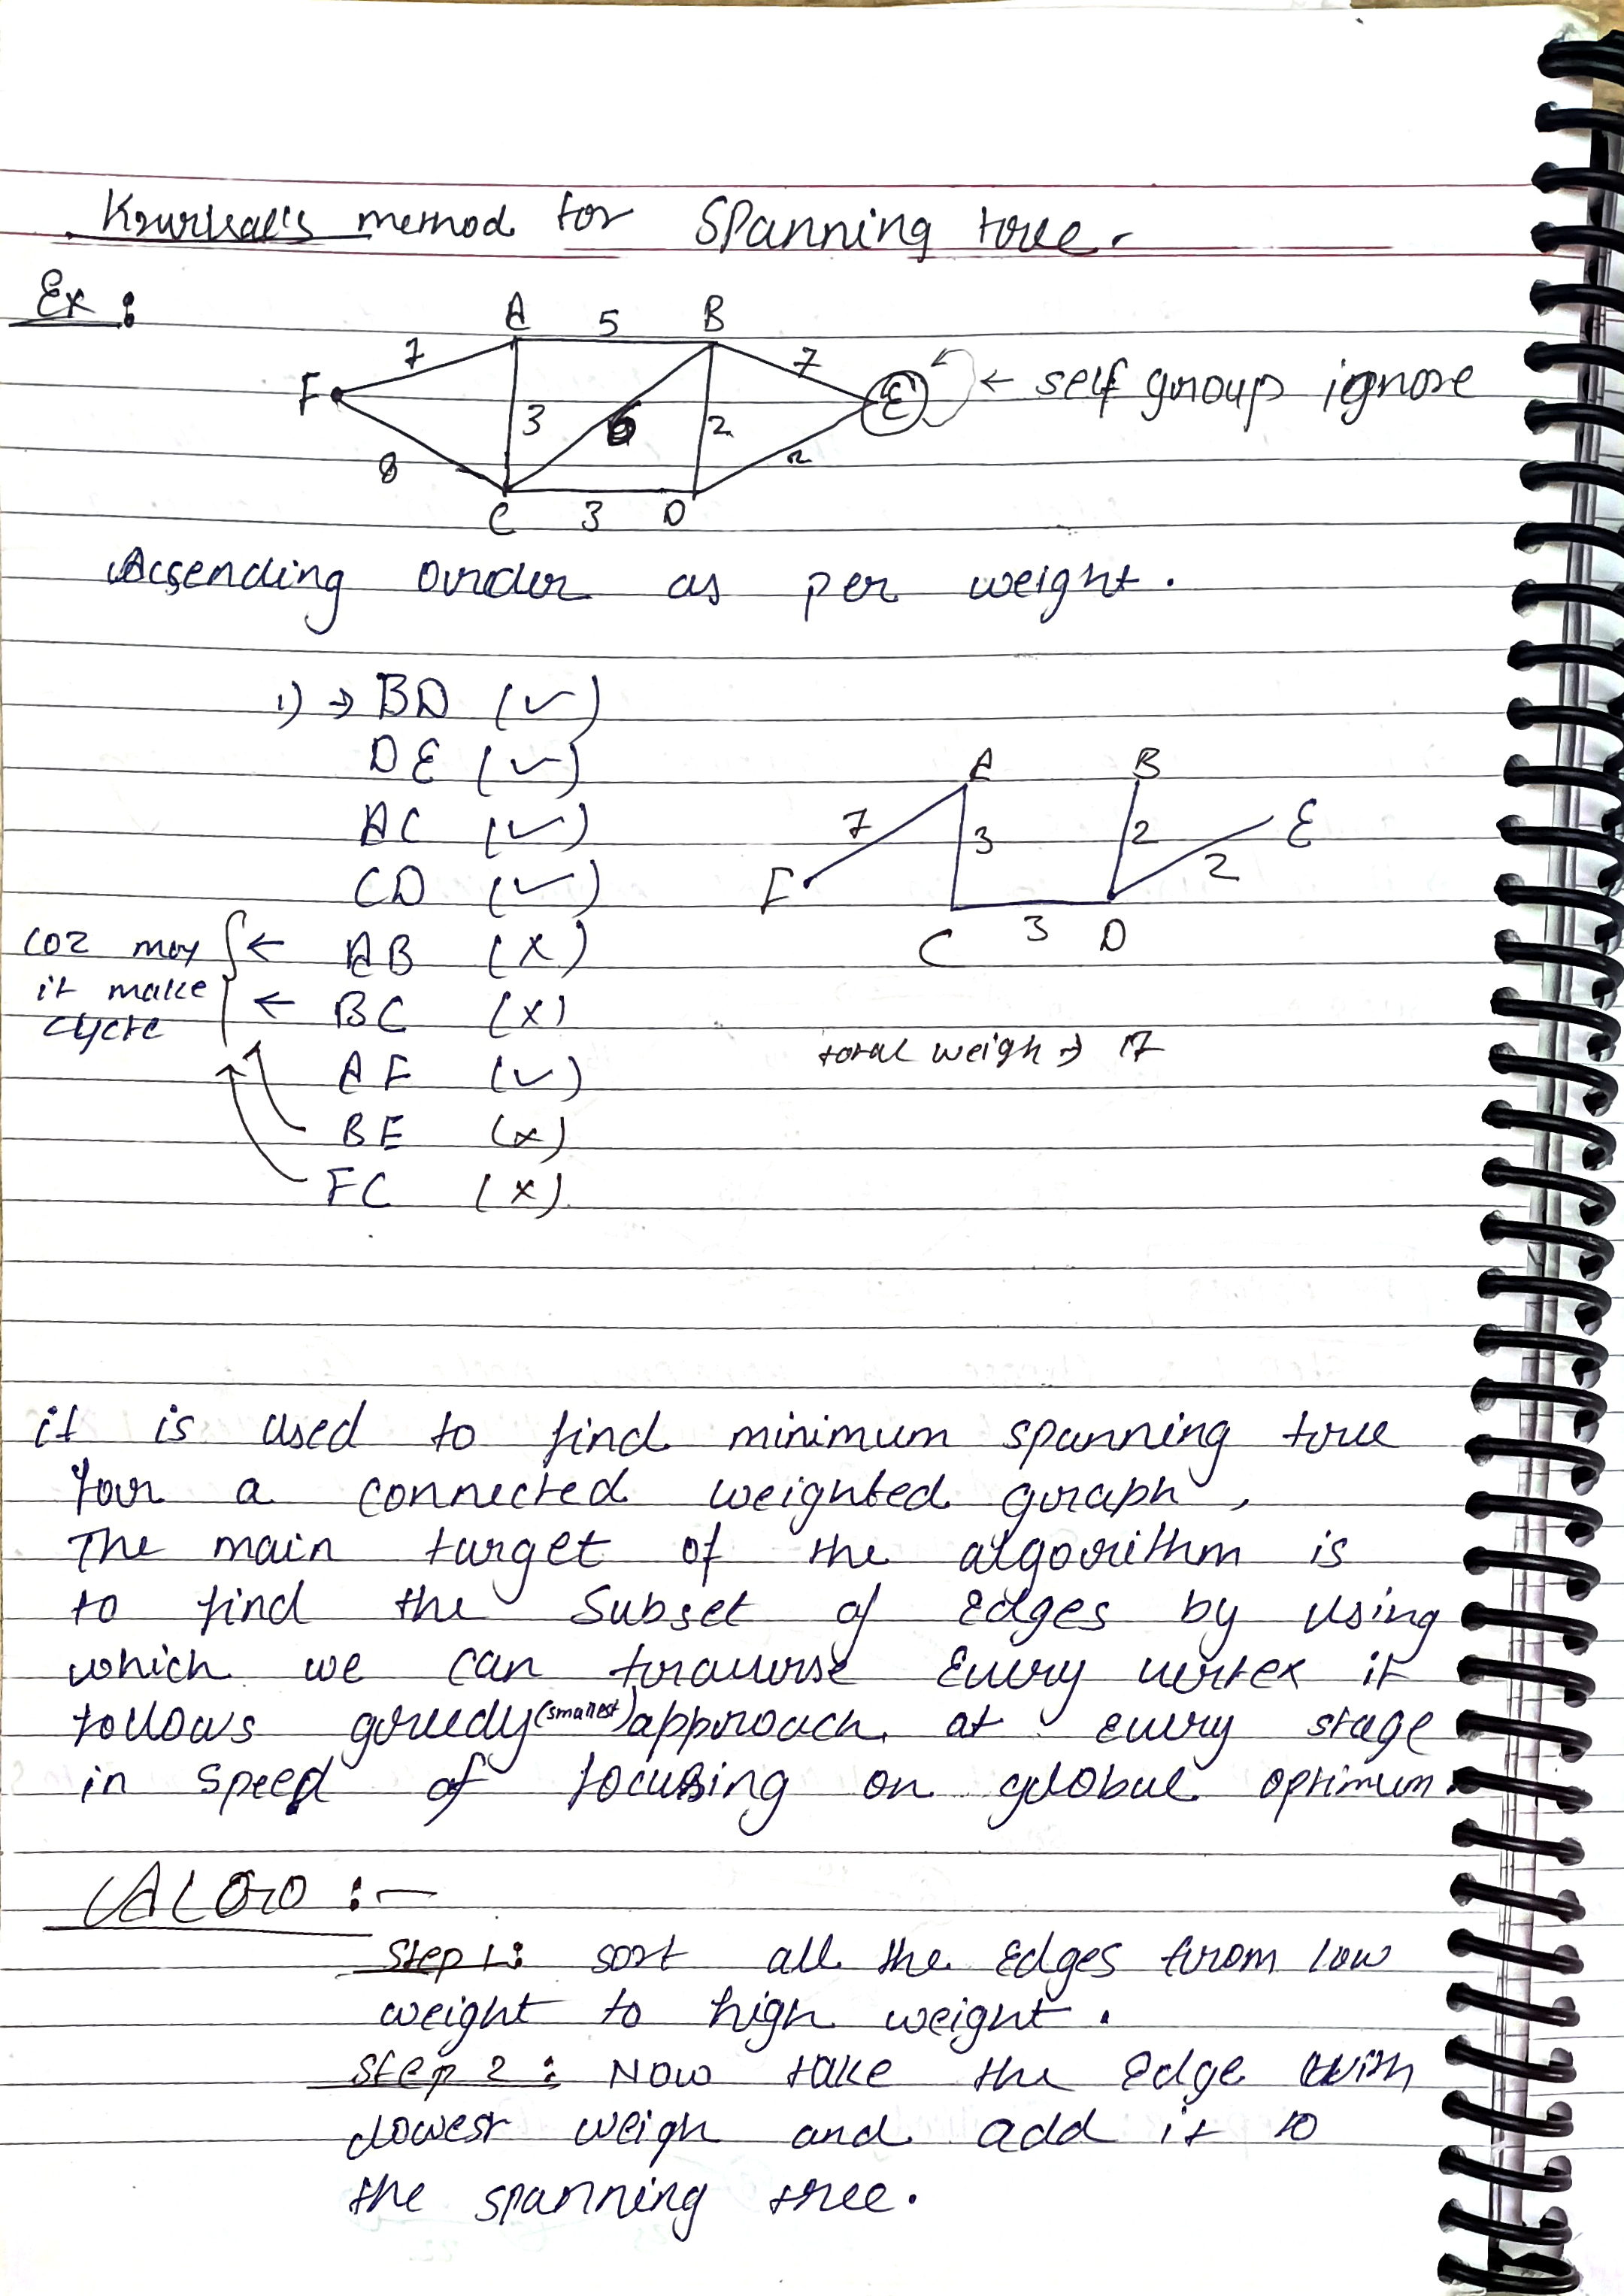 Kruskal's method for Spanning tree.
Ex :
A 5 B
7 7
F 3 6 2 E ← self group ignore
8 2
C 3 D
Acsending order as per weight.
1) → BD (✓)
DE (✓)
AC (✓)
CD (✓)
coz may ← AB (x)
it make ← BC (x)
cycle
AF (✓)
BE (x)
FC (x).
A B
7 3 2 E
F 2
C 3 D
total weigh → 17
it is used to find minimum spanning tree
for a connected weighted graph,
The main target of the algorithm is
to find the Subset of Edges by using
which we can traverse Every vertex it
follows greedy (smallest) approach at every stage
in speed of focusing on global optimum.
ALGO :-
Step 1: sort all the Edges from low
weight to high weight.
Step 2 : Now take the Edge with
lowest weigh and add it to
the spanning tree.